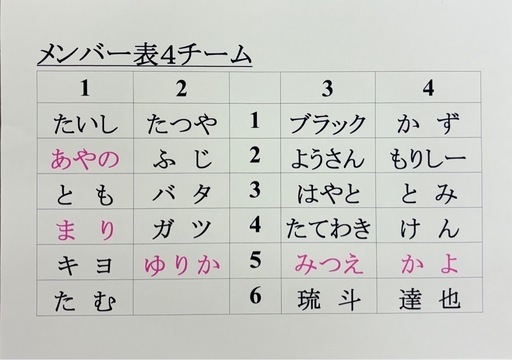 メンバー表4チーム
1 2 3 4
たいし たつや 1 ブラック かず
あやの ふじ 2 ようさん もりしー
とも バタ 3 はやと とみ
まり ガツ 4 たてわき けん
キヨ ゆりか 5 みつえ かよ
たむ 6 琉斗 達也